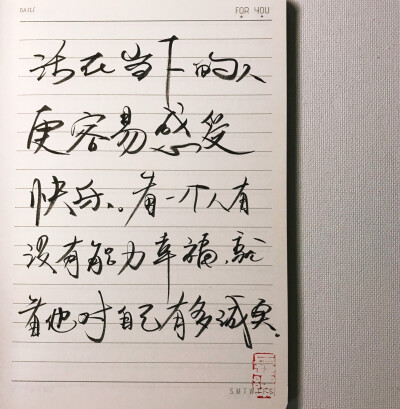 DATE/
FOR YOU
活在当下的人
更容易感受
快乐。看一个人有
没有能力幸福,就
看他对自己有多诚实.
S M T W T F S